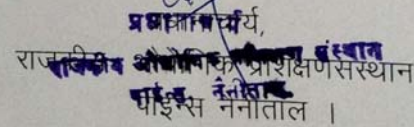 प्रधानाचार्य,
राजकीय औद्योगिक प्रशिक्षण संस्थान
पाईन्स नैनीताल ।